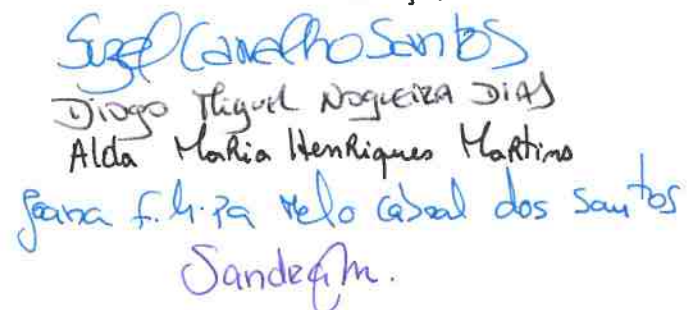 Suzel Carvalho Santos
Diogo Miguel Nogueira Dias
Alda Maria Henriques Martins
Joana Filipa Melo Cabral dos Santos
Sandra M.